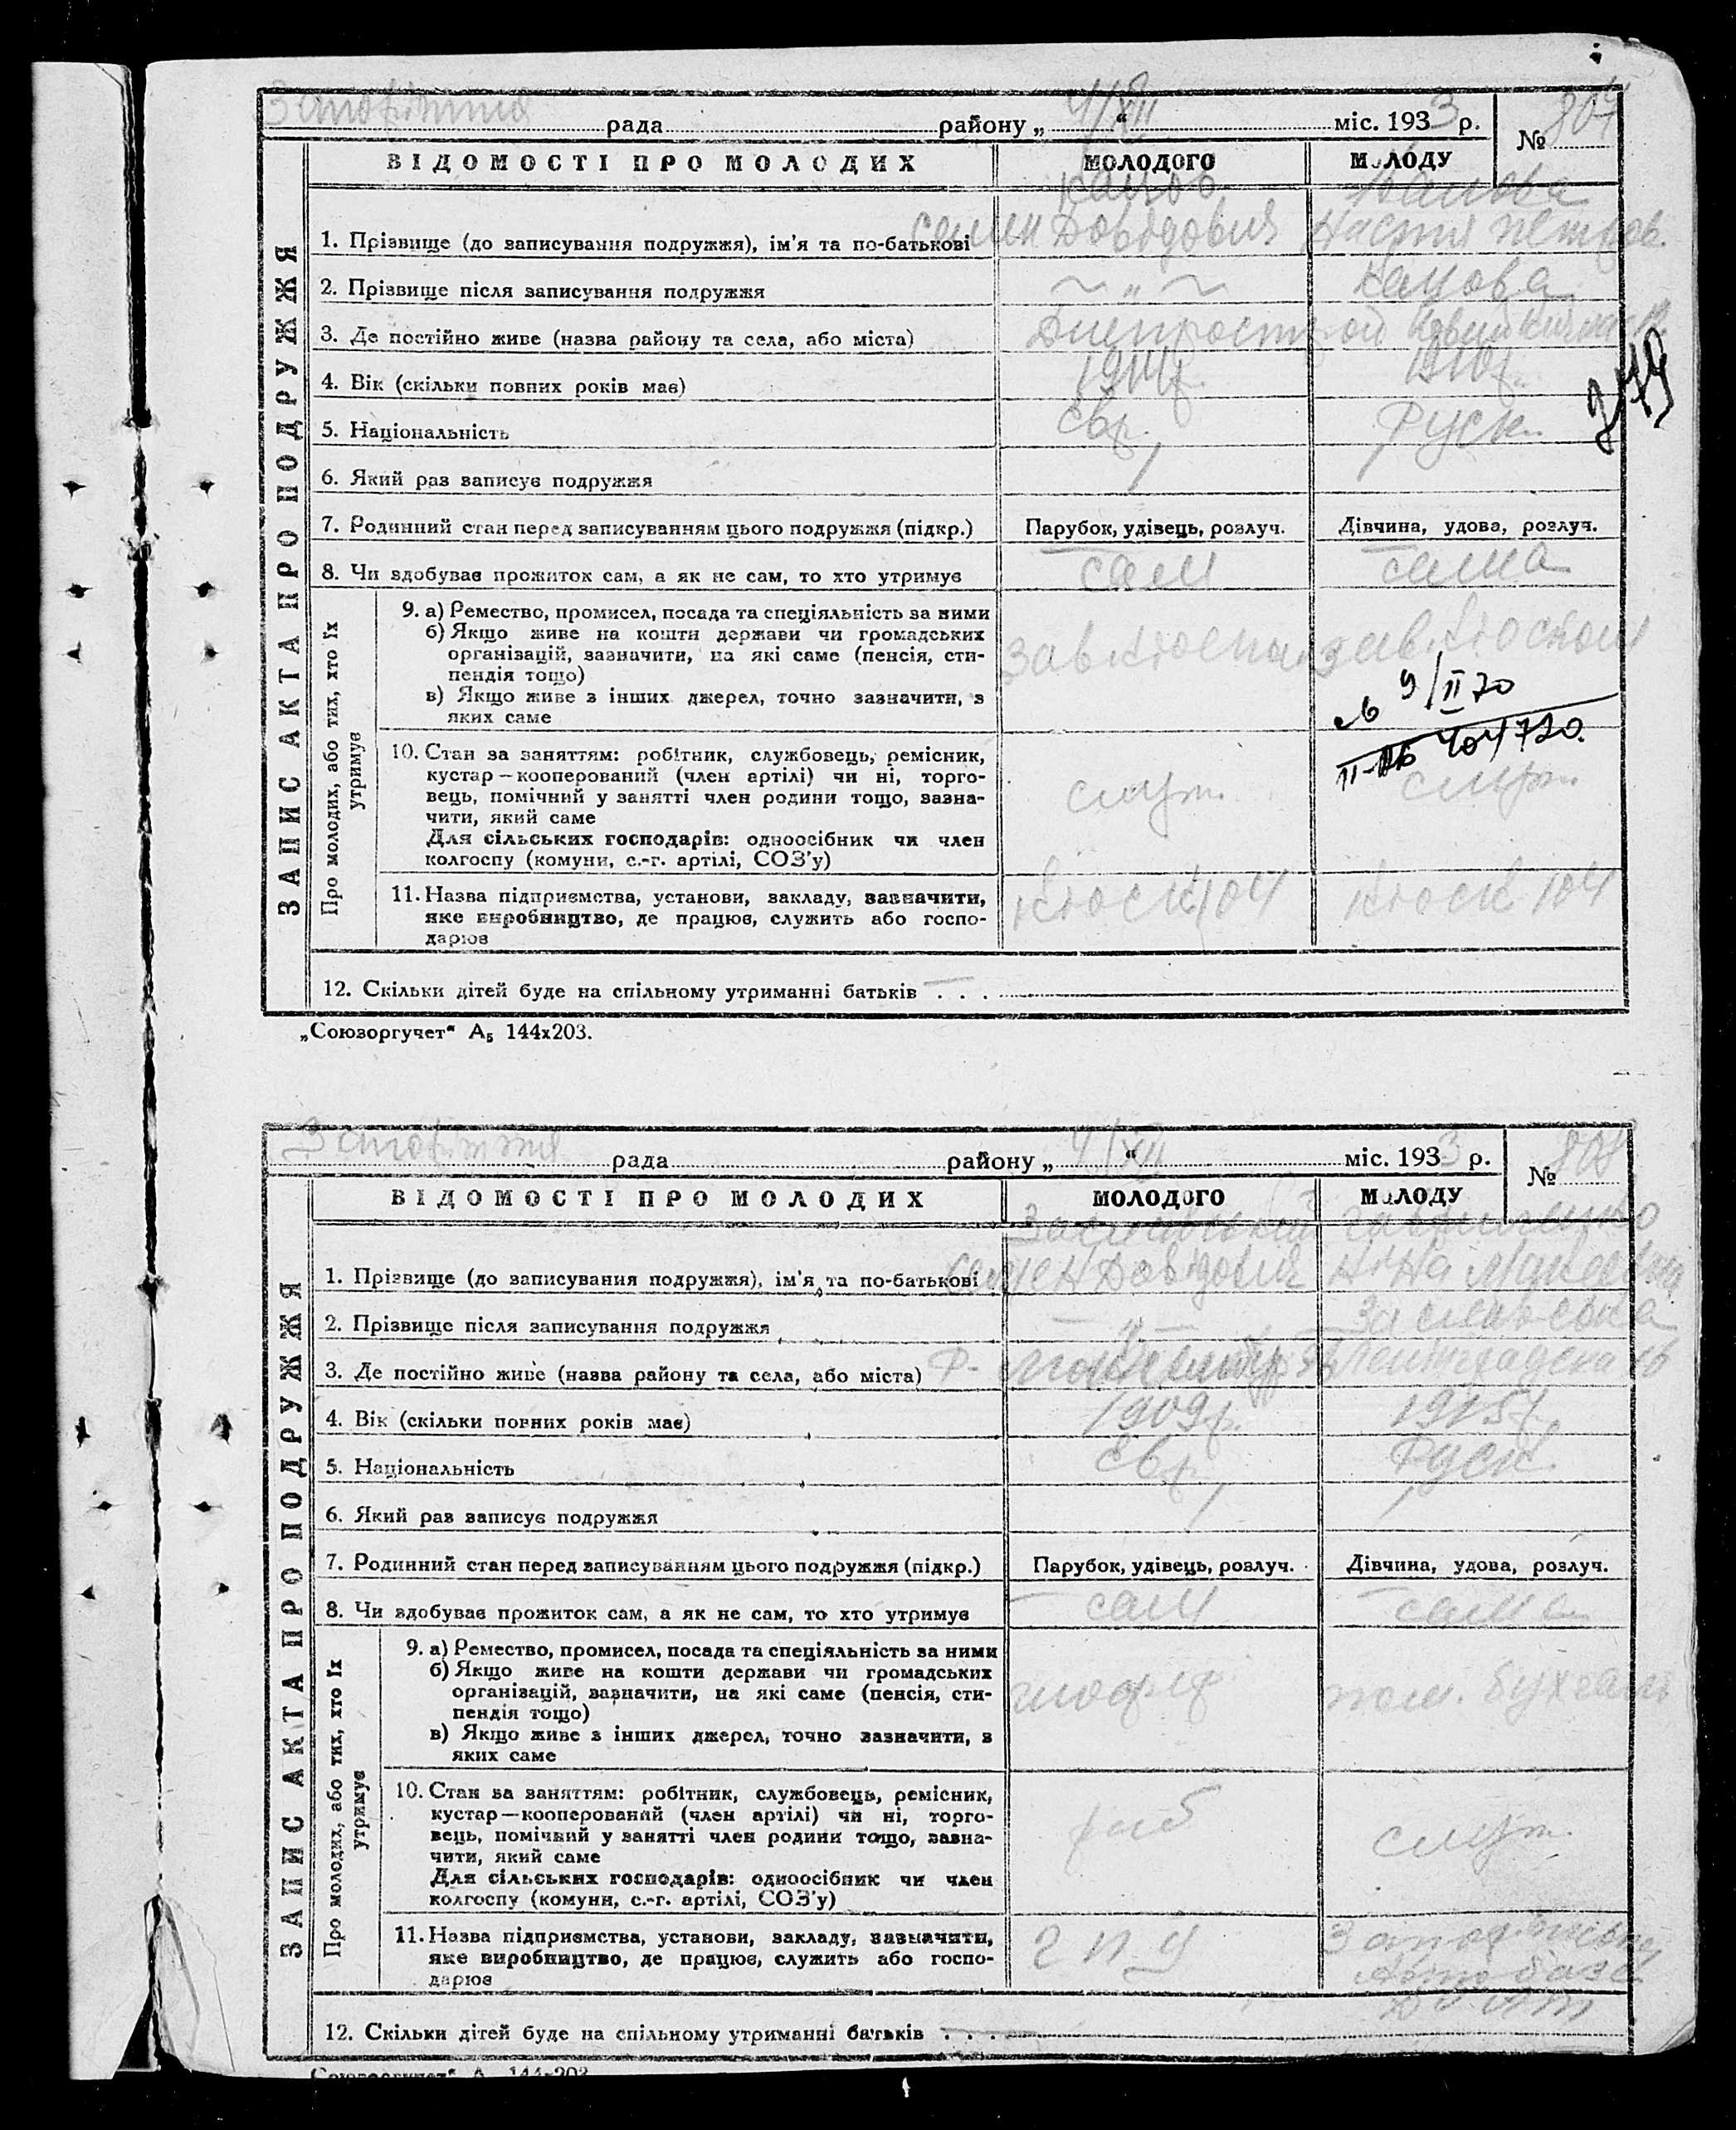 рада району „ 4/XII “ міс. 1933 р. №
ВІДОМОСТІ ПРО МОЛОДИХ
МОЛОДОГО
МОЛОДУ
ЗАПИС АКТА ПРО ПОДРУЖЖЯ
1. Прізвище (до записування подружжя), ім'я та по-батькові
Семен Довідович
2. Прізвище після записування подружжя
— „ —
3. Де постійно живе (назва району та села, або міста)
4. Вік (скільки повних років має)
1910р.
5. Національність
Євр.
Руск.
6. Який раз записує подружжя
1
1
7. Родинний стан перед записуванням цього подружжя (підкр.)
Парубок, удівець, розлуч.
Дівчина, удова, розлуч.
8. Чи здобуває прожиток сам, а як не сам, то хто утримує
сам
сама
Про молодих, або тих, хто їх утримує
9. а) Ремество, промисел, посада та спеціяльність за ними
б) Якщо живе на кошти держави чи громадських
організацій, зазначити, на які саме (пенсія, сти-
пендія тощо)
в) Якщо живе з інших джерел, точно зазначити, з
яких саме
зав. кюском
9/II 70
404720.
10. Стан за заняттям: робітник, службовець, ремісник,
кустар—кооперований (член артілі) чи ні, торго-
вець, помічний у занятті член родини тощо, зазна-
чити, який саме
Для сільських господарів: одноосібник чи член
колгоспу (комуни, с.-г. артілі, СОЗ'у)
служ.
служ.
11. Назва підприємства, установи, закладу, зазначити,
яке виробництво, де працює, служить або госпо-
дарює
Кюск 104
Кюск 104
12. Скільки дітей буде на спільному утриманні батьків . . . —
„Союзоргучет“ А5 144х203.
рада району „ 4/XII “ міс. 1933 р. №
ВІДОМОСТІ ПРО МОЛОДИХ
МОЛОДОГО
МОЛОДУ
ЗАПИС АКТА ПРО ПОДРУЖЖЯ
1. Прізвище (до записування подружжя), ім'я та по-батькові
Семен Довідович
2. Прізвище після записування подружжя
— „ —
3. Де постійно живе (назва району та села, або міста)
4. Вік (скільки повних років має)
1909р.
1915р.
5. Національність
Євр.
Руск.
6. Який раз записує подружжя
1
1
7. Родинний стан перед записуванням цього подружжя (підкр.)
Парубок, удівець, розлуч.
Дівчина, удова, розлуч.
8. Чи здобуває прожиток сам, а як не сам, то хто утримує
сам
сама
Про молодих, або тих, хто їх утримує
9. а) Ремество, промисел, посада та спеціяльність за ними
б) Якщо живе на кошти держави чи громадських
організацій, зазначити, на які саме (пенсія, сти-
пендія тощо)
в) Якщо живе з інших джерел, точно зазначити, з
яких саме
пом. бухгалт
10. Стан за заняттям: робітник, службовець, ремісник,
кустар—кооперований (член артілі) чи ні, торго-
вець, помічний у занятті член родини тощо, зазна-
чити, який саме
Для сільських господарів: одноосібник чи член
колгоспу (комуни, с.-г. артілі, СОЗ'у)
роб
служ.
11. Назва підприємства, установи, закладу, зазначити,
яке виробництво, де працює, служить або госпо-
дарює
гпу
12. Скільки дітей буде на спільному утриманні батьків . . . —
„Союзоргучет“ А5 144х203